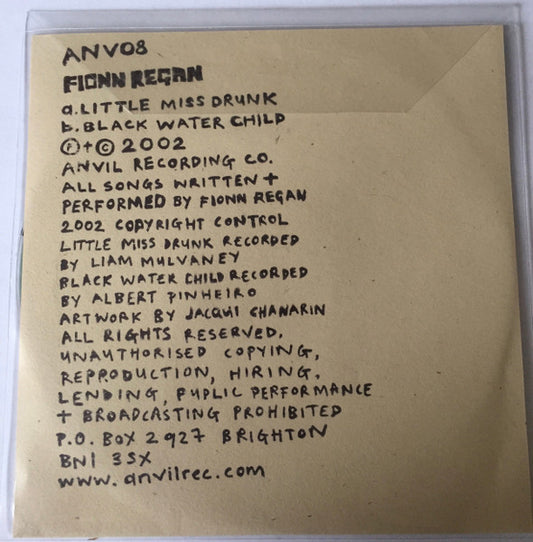 ANV08
FIONN REGAN
a. LITTLE MISS DRUNK
b. BLACK WATER CHILD
Ⓟ + © 2002
ANVIL RECORDING CO.
ALL SONGS WRITTEN +
PERFORMED BY FIONN REGAN
2002 COPYRIGHT CONTROL
LITTLE MISS DRUNK RECORDED
BY LIAM MULVANEY
BLACK WATER CHILD RECORDED
BY ALBERT PINHEIRO
ARTWORK BY JACQUI CHANARIN
ALL RIGHTS RESERVED.
UNAUTHORISED COPYING,
REPRODUCTION, HIRING,
LENDING, PUPLIC PERFORMANCE
+ BROADCASTING PROHIBITED
P.O. BOX 2927 BRIGHTON
BN1 3SX
www.anvilrec.com